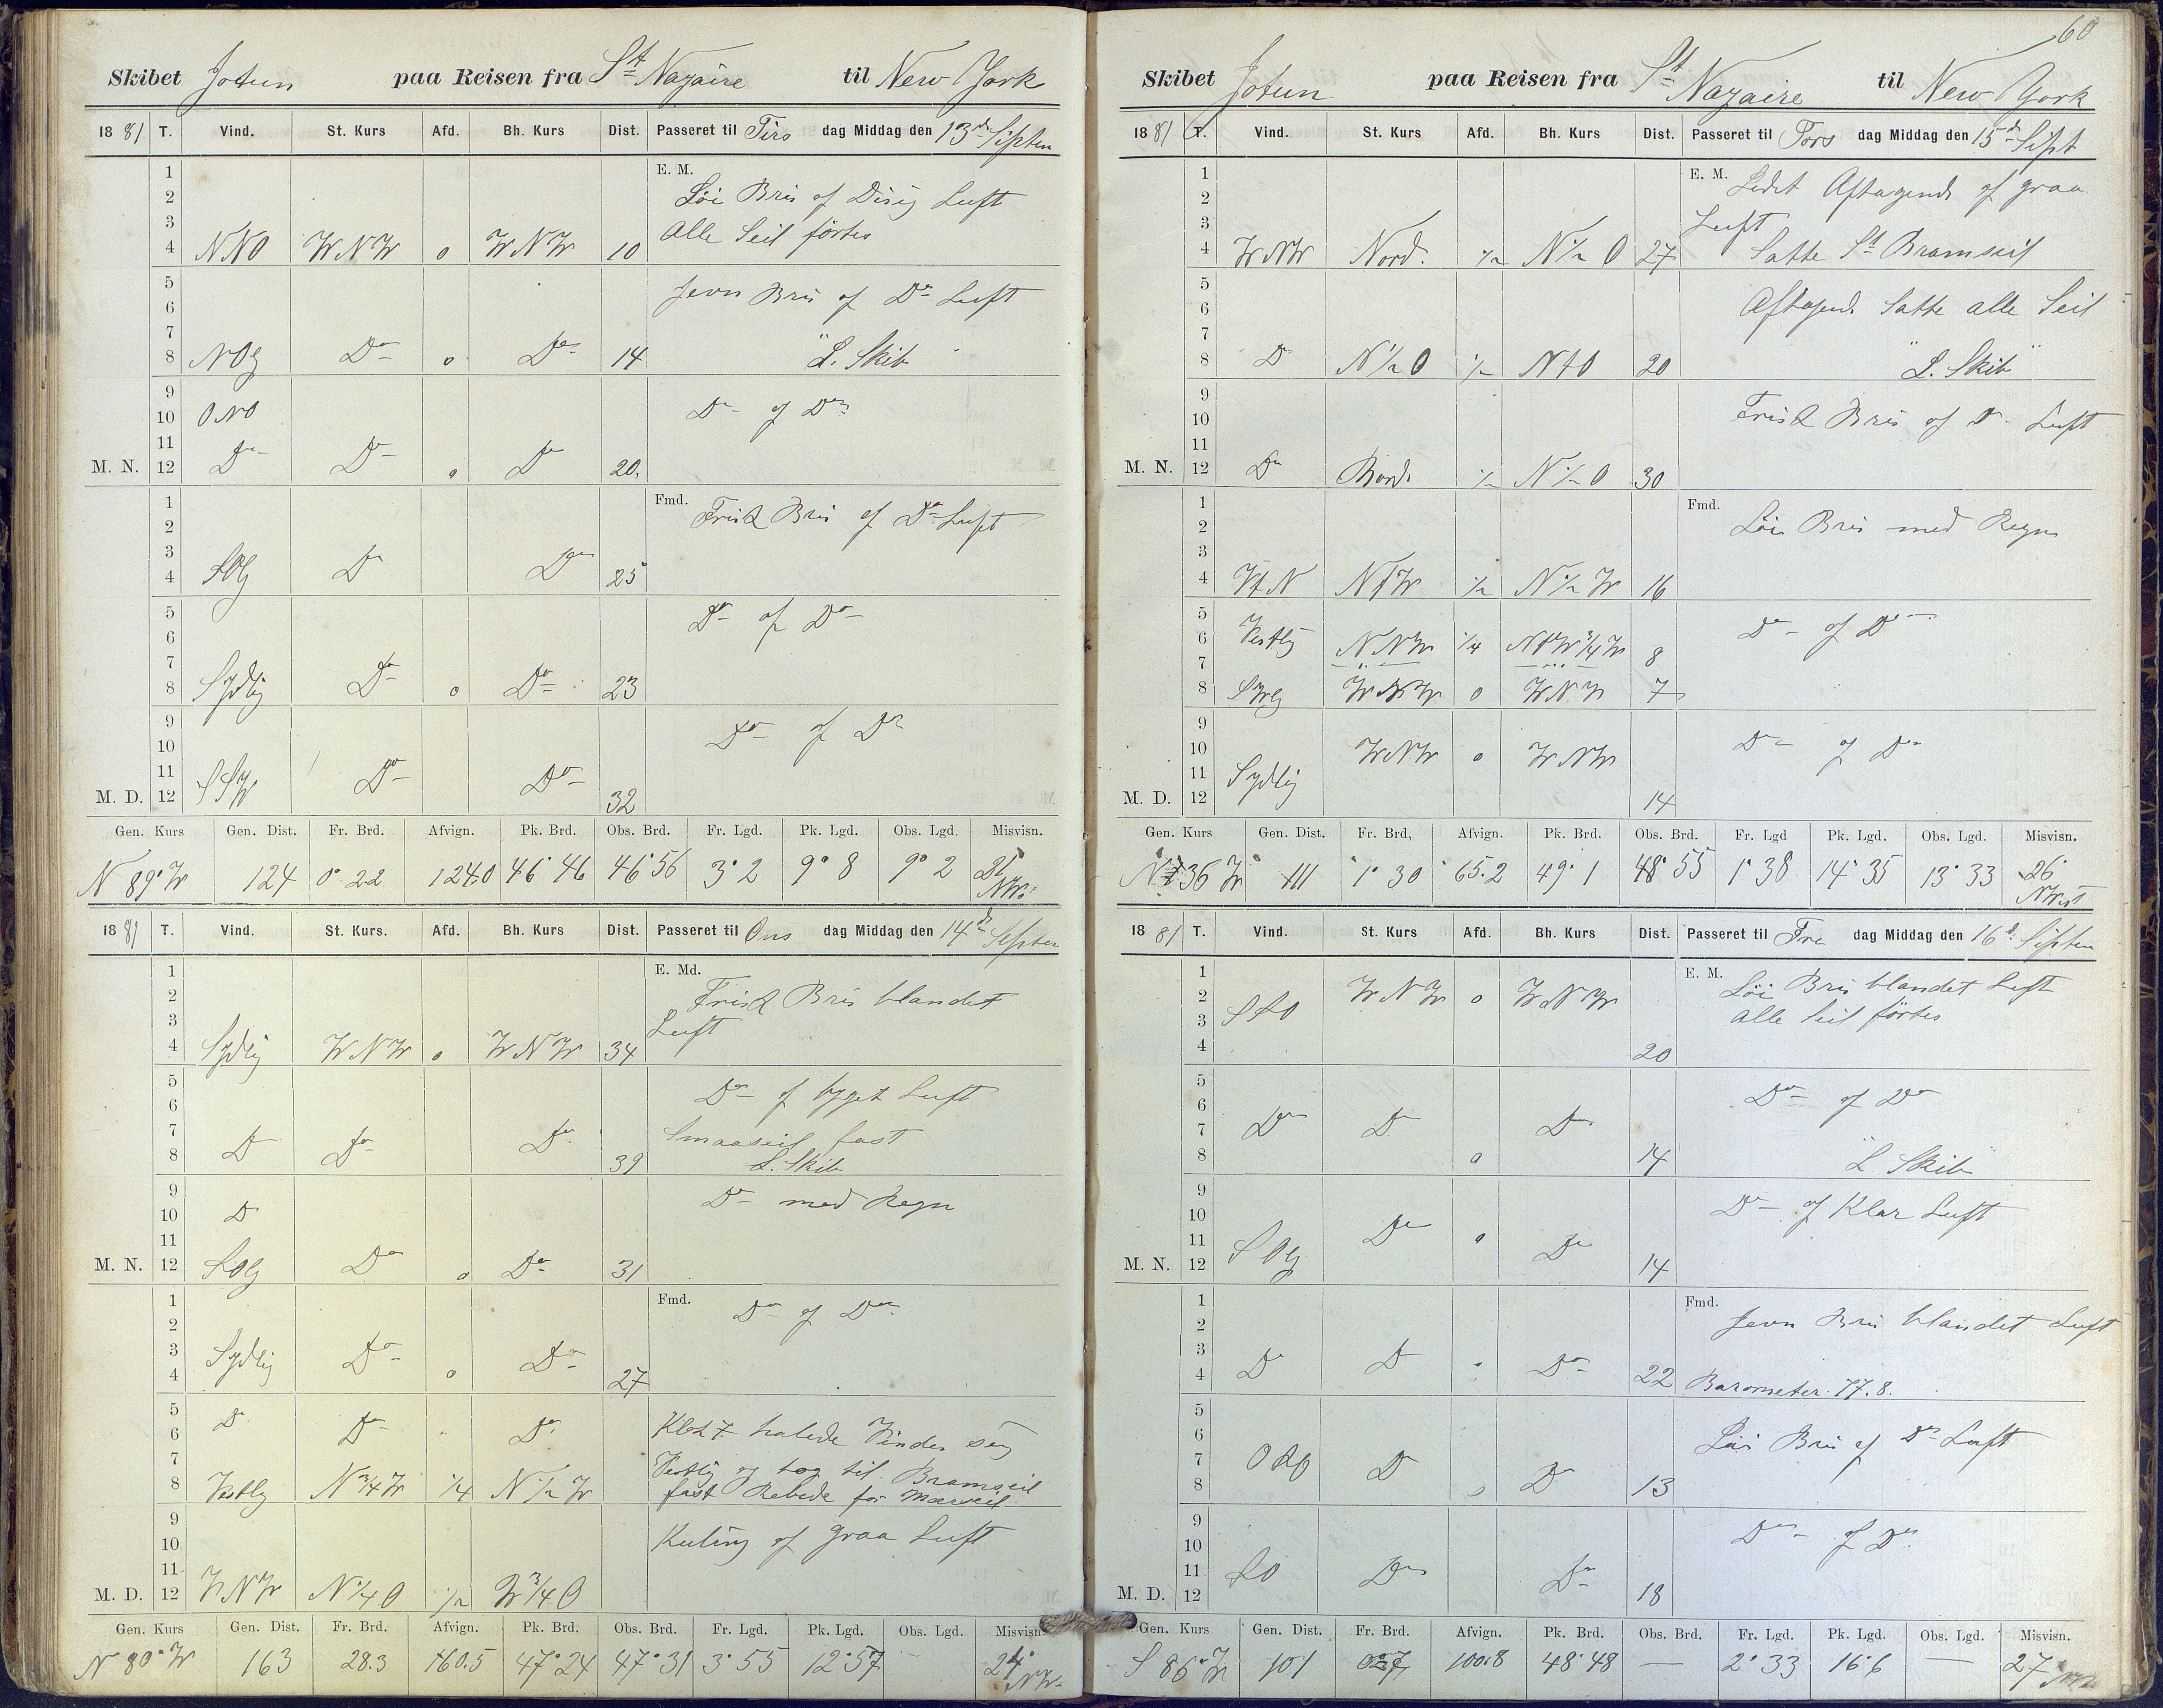 60
Skibet Jotun paa Reisen fra St Nazaire til New York
1881 T. Vind. St. Kurs Afd. Bh. Kurs Dist. Passeret til Tirs dag Middag den 13de Septem
E. M.
1
2 Löi Bris og Disig Luft
3 alle Seil förtes
4 NNO WNW 0 WNW 10
5 Jevn Bris og Do Luft
6
7
8 NOlg Do 0 Do 14 "L. Skib"
9
10 ONO Do og Do
11
M. N. 12 Do Do 0 Do 20.
Fmd.
1 Frisk Bris og Do Luft
2
3
4 SOlg Do Do 25
5 Do og Do
6
7
8 Sydlig Do 0 Do 23
9 Do og Do
10
11 SSW Do Do
M. D. 12 32
Gen. Kurs Gen. Dist. Fr. Brd. Afvign. Pk. Brd. Obs. Brd. Fr. Lgd. Pk. Lgd. Obs. Lgd. Misvisn.
N 89° W 124 0° 22 124.0 46° 46 46° 56 3° 2 9° 8 9° 2 NW
1881 T. Vind. St. Kurs. Afd. Bh. Kurs Dist. Passeret til Ons dag Middag den 14de Septem
E. Md.
1
2 Frisk Bris blandet
3 Luft
4 Sydlig WNW 0 WNW 34
5 Do og byget Luft
6
7 Do Do Do Smaaseil fast
8 39 L. Skib
9 Do med Regn
10 Do
11
M. N. 12 SOlg Do 0 Do 31
Fmd.
1 Do og Do
2
3 Sydlig Do Do
4 0 27
5 Do
6 Do Do Klok 7 halede Vinden sig
7 Vestlig og tog til. Bramseil
8 Vestlig N 3/4 W 1/4 N 1/2 W fast Rebede for Mærseil
9
10 Kuling og graa Luft
11
M. D. 12 WNW N 1/4 O 1/2 3/4 O
Gen. Kurs Gen. Dist. Fr. Brd. Afvign. Pk. Brd. Obs. Brd. Fr. Lgd. Pk. Lgd. Obs. Lgd. Misvisn.
N 80° W 163 28.3 160.5 47° 24 47° 31 3° 55 12° 57 — 24° NW
Skibet Jotun paa Reisen fra St Nazaire til New York
1881 T. Vind. St. Kurs Afd. Bh. Kurs Dist. Passeret til Tors dag Middag den 15de Sept
E. M.
1 Aftagende og graa
2 Luft
3
4 WNW Nord. 1/2 N 1/2 O 27 Satte St Bramseil
5 Aftagend. Satte alle Seil
6
7
8 Do N 1/2 O 1/2 NtO 20 "L. Skib"
9
10 Frisk Bris og Do Luft
11
M. N. 12 Do Nord. 1/2 N 1/2 O 30
Fmd.
1 Löi Bris med Regn
2
3
4 VtN NtW 1/2 N 1/2 W 16
5 Do og Do
6 Vestlig NNW 1/4 NtW 3/4 W
7 8
8 SWlg WNW 0 WNW 7
9
10 WNW 0 WNW Do og Do
11 Sydlig
M. D. 12 14
Gen. Kurs Gen. Dist. Fr. Brd, Afvign. Pk. Brd. Obs. Brd. Fr. Lgd Pk. Lgd. Obs. Lgd. Misvisn.
N 36 W 111 1° 30 65.2 49° 1 48° 55 1° 38 14° 35 13° 33 26°
1881 T. Vind. St. Kurs Afd. Bh. Kurs Dist. Passeret til Fre dag Middag den 16d. Septem
E. M.
1 Löi Bris blandet Luft
2 SSO WNW 0 WNW alle Seil förtes
3
4 20
5 Do og Do
6
7 Do Do Do
8 0 14 "L Skib"
9 Do og Klar Luft
10 Do
11 SOlg 0 Do
M. N. 12 14
Fmd.
1 Jevn Bris blandet Luft
2
3 Do Do Do
4 22 Barometer. 77.8.
5
6 Löi Bris og Do Luft
7 OSO Do Do
8 13
9 Do og Do
10
11 SO Do Do
M. D. 12 18
Gen. Kurs Gen. Dist. Fr. Brd. Afvign. Pk. Brd. Obs. Brd. Fr. Lgd. Pk. Lgd. Obs. Lgd. Misvisn.
S 86° W 101 100.8 48° 48 — 2° 33 16° 6 — 27